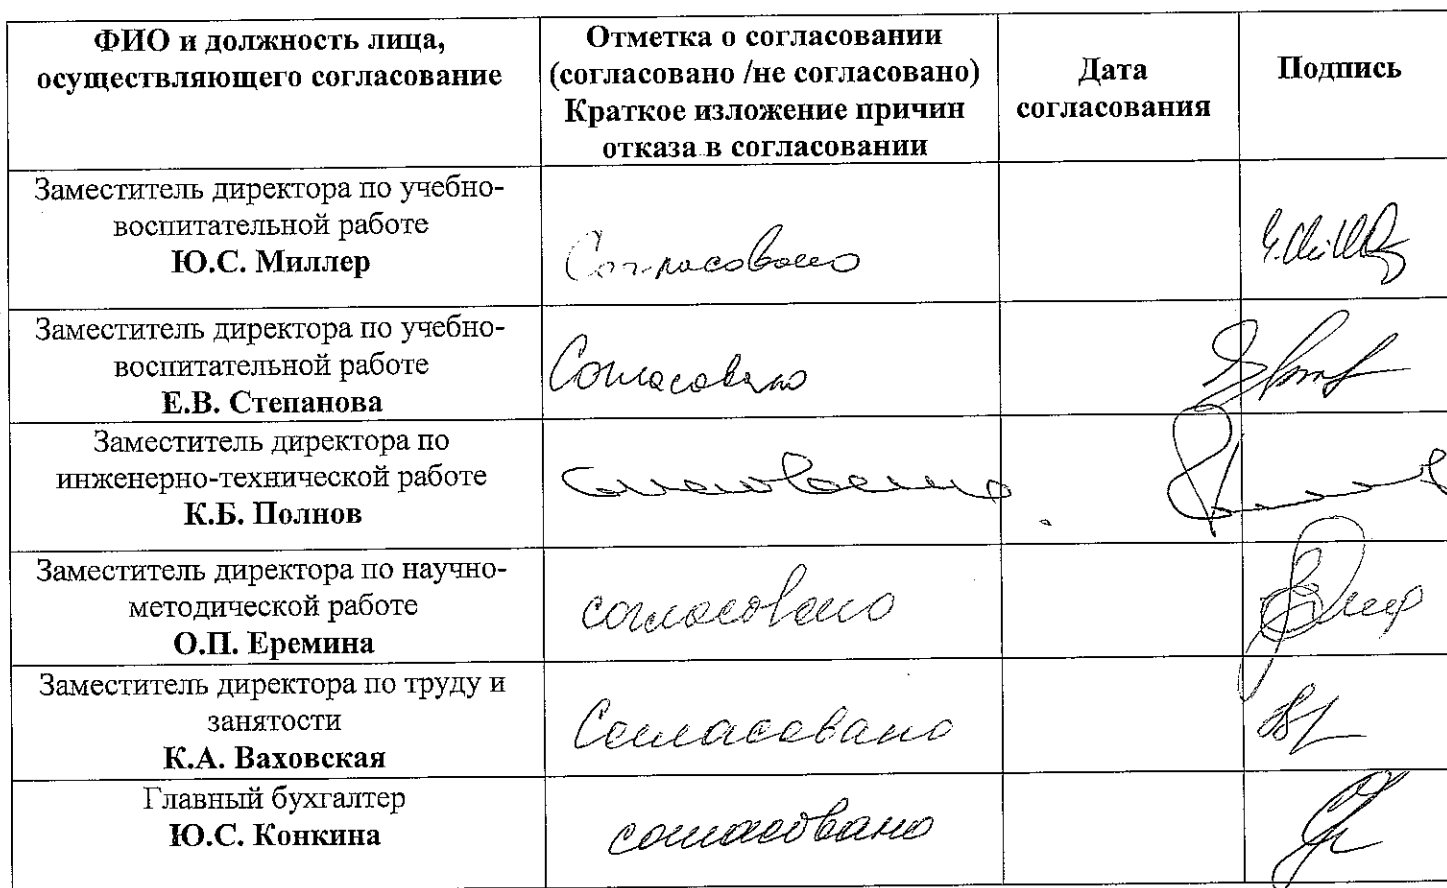 ФИО и должность лица,
осуществляющего согласование
Отметка о согласовании
(согласовано /не согласовано)
Краткое изложение причин
отказа в согласовании
Дата
согласования
Подпись
Заместитель директора по учебно-
воспитательной работе
Ю.С. Миллер
Согласовано
Заместитель директора по учебно-
воспитательной работе
Е.В. Степанова
Согласовано
Заместитель директора по
инженерно-технической работе
К.Б. Полнов
согласовано
Заместитель директора по научно-
методической работе
О.П. Еремина
согласовано
Заместитель директора по труду и
занятости
К.А. Ваховская
Согласовано
Главный бухгалтер
Ю.С. Конкина
согласовано